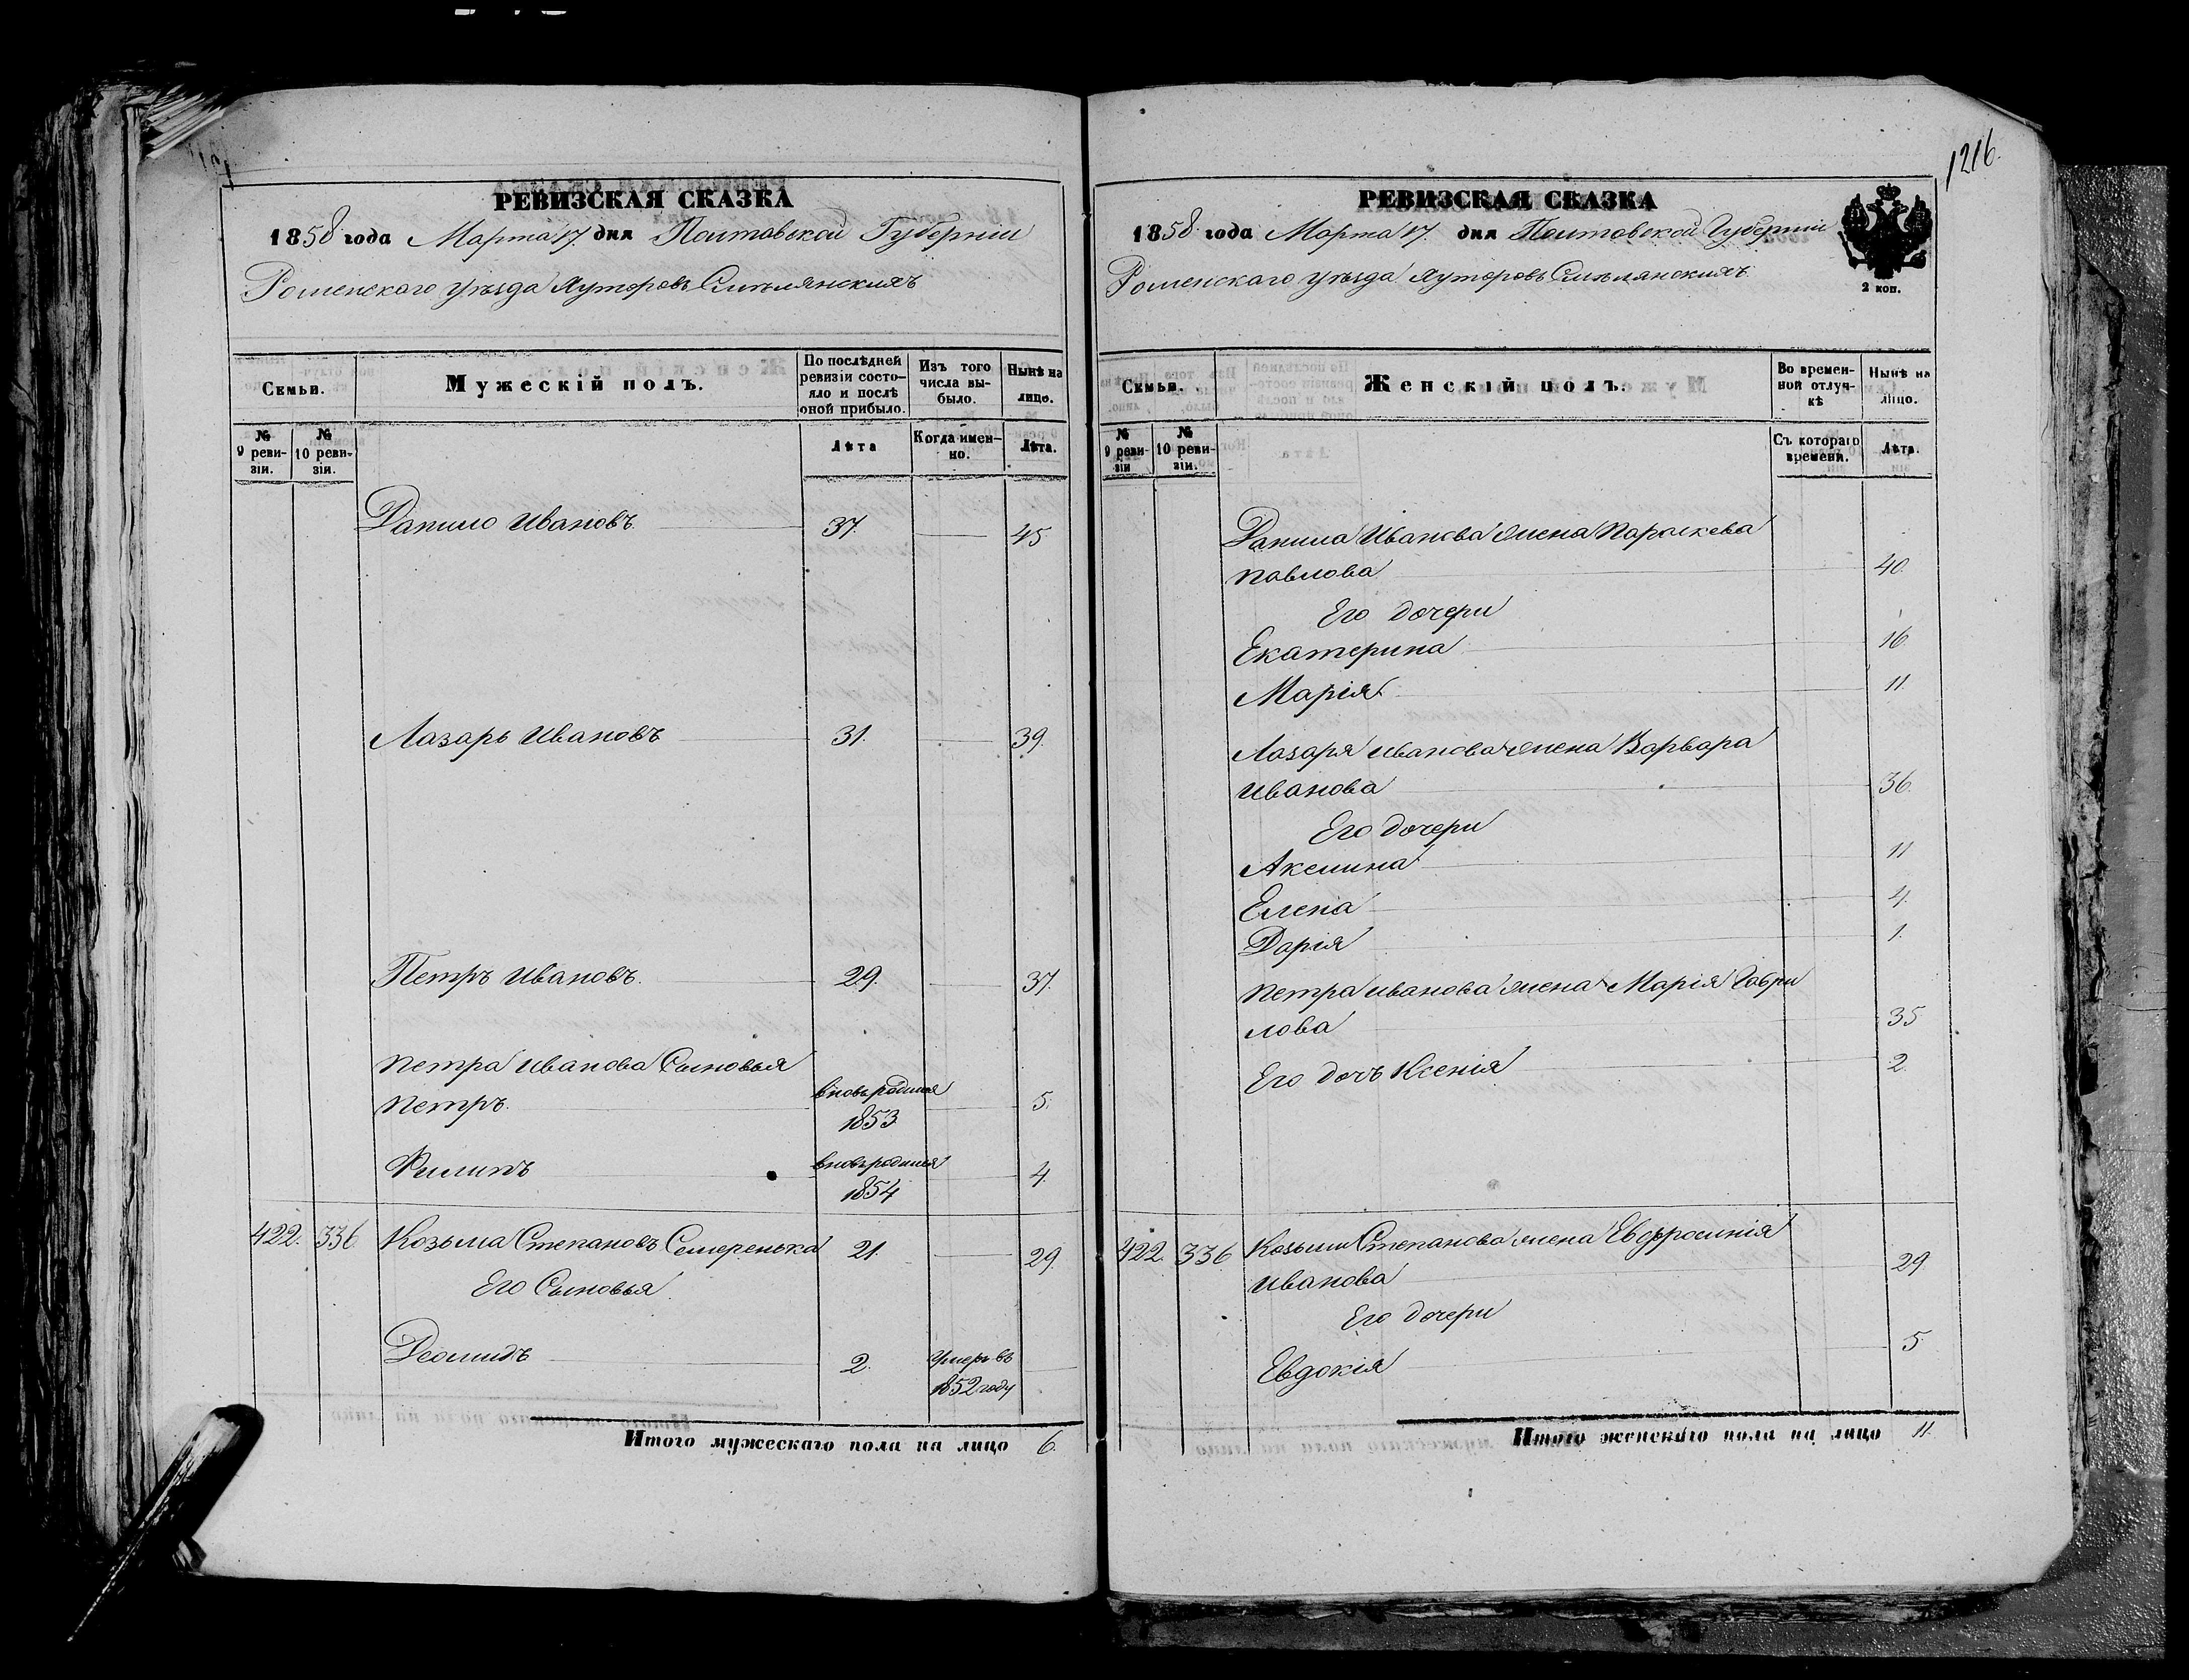 1216.
РЕВИЗСКАЯ СКАЗКА
1858 года Марта 17. дня Полтавской Губерніи
Роменскаго уѣзда Хуторовъ Смѣлянскихъ
Семьи.
Мужескій полъ.
По послѣдней ревизіи состо-
яло и послѣ оной прибыло.
Изъ того числа вы-
было.
Нынѣ на лицо.
№ 9 реви-
зіи.
№ 10 реви-
зіи.
Лѣта
Когда имен-
но.
Лѣта.
Данило Ивановъ 37. 45
Лазарь Ивановъ 31. 39.
Петръ Ивановъ. 29. 37.
Петра Иванова Сыновья
Петръ. вновьродился 1853 5.
Филипъ вновьродился 1854 4.
422. 336 Козьма Степановъ Семеренька 21. 29
Его Сыновья
Деомидъ 2. Умеръ въ 1852 году
Итого мужескаго пола на лицо 6.
РЕВИЗСКАЯ СКАЗКА
1858 года Марта 17. дня Полтавской Губерніи
Роменскаго уѣзда Хуторовъ Смѣлянскихъ
2 коп.
Семьи.
Женскій полъ.
Во времен-
ной отлуч-
кѣ
Нынѣ на лицо.
№ 9 реви-
зіи
№ 10 реви-
зіи.
Съ котораго времени.
Лѣта.
Данила Иванова жена Параскева
Павлова 40
Его дочери
Екатерина 16
Марія 11.
Лазаря Иванова жена Варвара
Иванова 36.
Его дочери
Акилина 11
Елена 4.
Дарія 1.
Петра Иванова жена Марія Гаври
лова 35
Его дочь Ксенія 2.
422. 336 Козьмы Степанова жена Евфросинія
Иванова 29
Его дочери
Евдокія 5.
Итого женскаго пола на лицо 11.